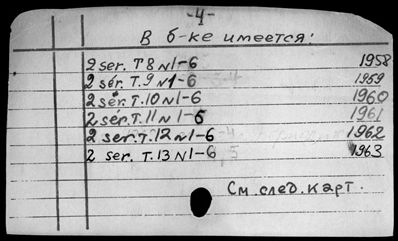 -4-
В б-ке имеется:
2 ser. T 8 N1-6 1958
2 sér. T. 9 N1-6 1959
2 sér. T. 10 N1-6 1960
2 sér. T. 11 N1-6 1961
2 ser. T. 12 N1-6 1962
2 ser. T. 13 N1-6 1963
См. след. карт.